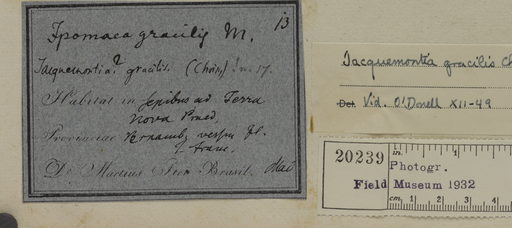 13
Ipomaea gracilis M.
Jacquemontia? gracilis. (Chois) ! n. 17.
Habitat in sepibus ad Terra
Nova Praed.
Provinciae Pernamb. versus fl.
S. Franc.
Dr. Martius Iter Brasil. Mai
Jacquemontia gracilis Ch
Det. Vid. O'Donell XII-49
20239
in. 1
Photogr.
Field Museum 1932
cm. 1 2 3 4